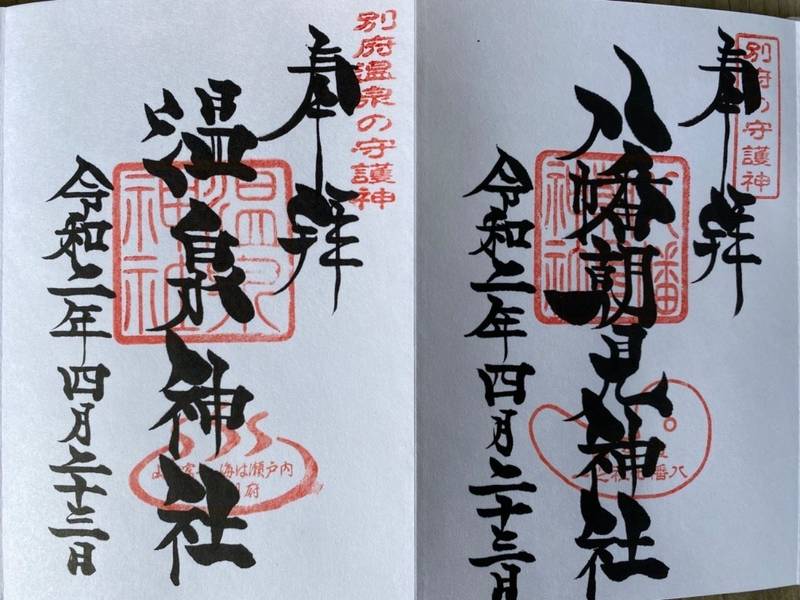 別府の守護神
奉拝
八幡朝見神社
令和二年四月二十三日
別府温泉の守護神
奉拝
温泉神社
温泉
神社
令和二年四月二十三日